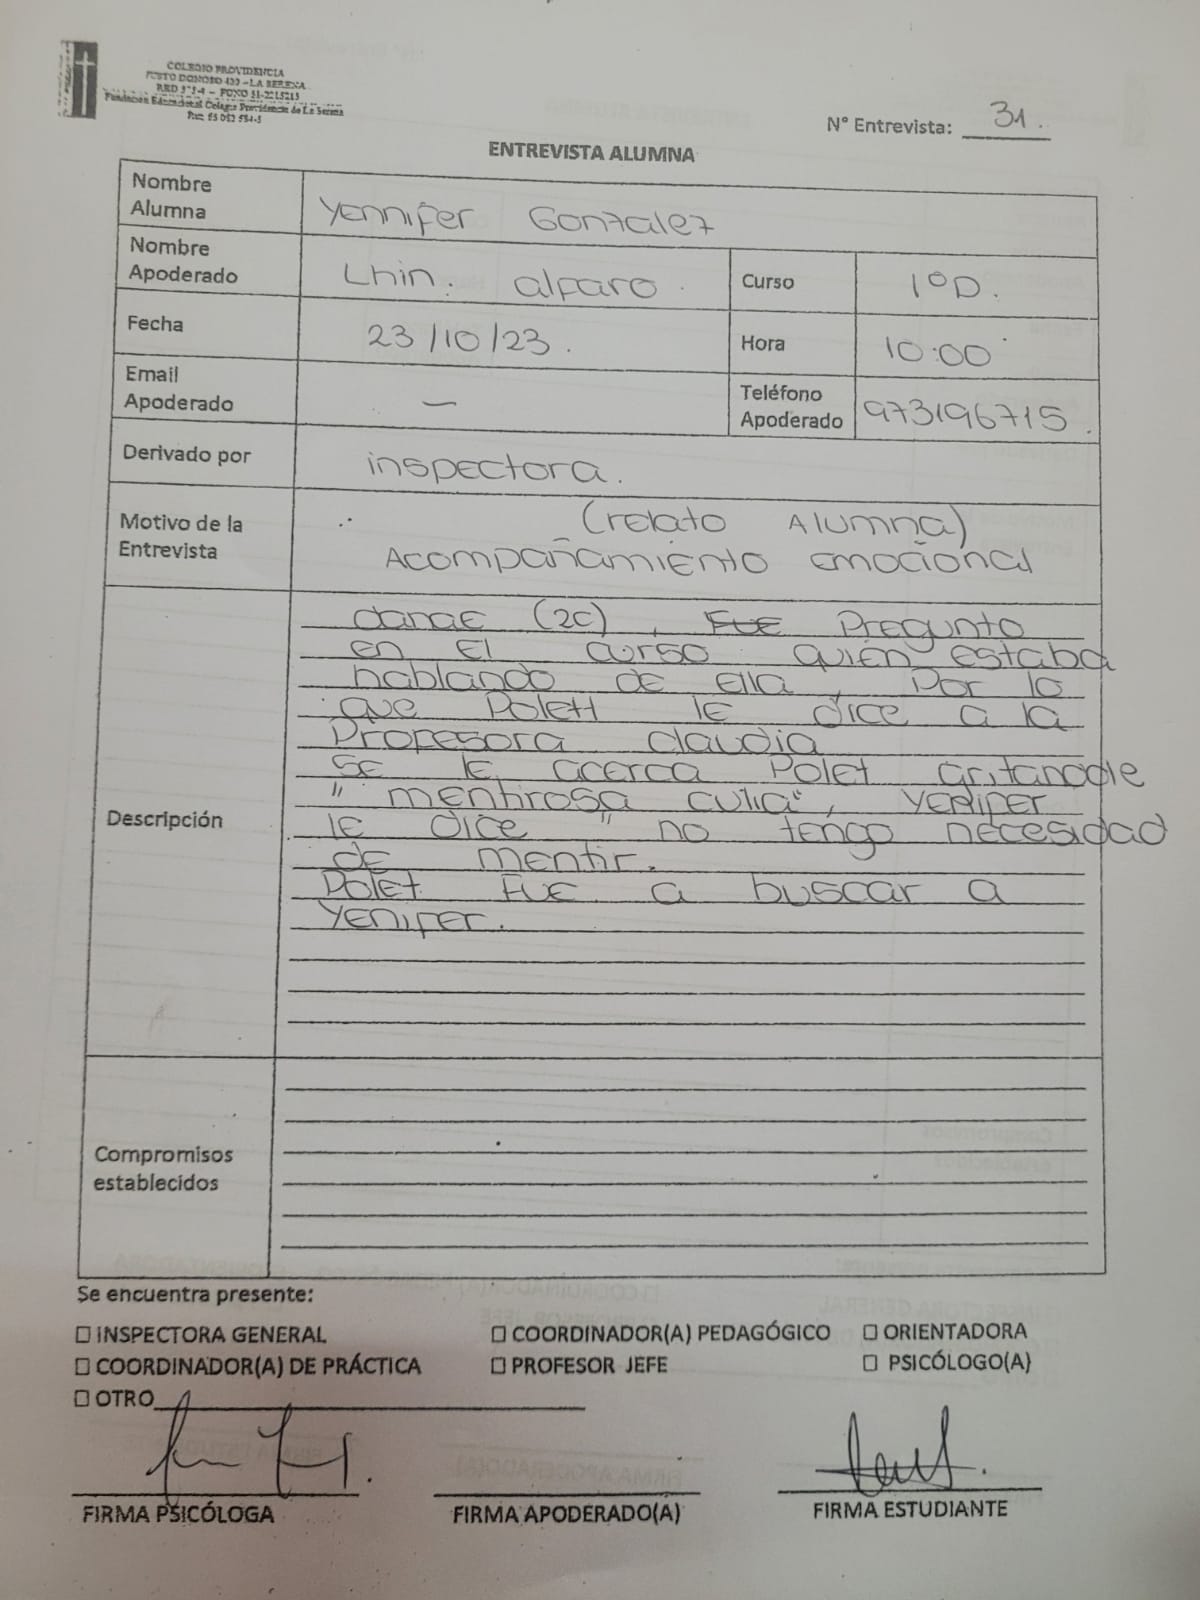 COLEGIO PROVIDENCIA
JUSTO DONOSO 420 – LA SERENA
Fundación Educacional Colegio Providencia de La Serena
N° Entrevista: 31.
ENTREVISTA ALUMNA
Nombre Alumna Yennifer Gonzalez
Nombre Apoderado Lhin. alfaro. Curso 1°D.
Fecha 23/10/23. Hora 10:00
Email Apoderado — Teléfono Apoderado 973196715.
Derivado por inspectora.
Motivo de la Entrevista (relato Alumna)
Acompañamiento emocional
Descripción
danae (2c), Fue Pregunto
en el curso quien estaba
hablando de ella, Por lo
que Polett le dice a la
Profesora claudia
se le acerca Polet gritandole
" mentirosa culia", Yenifer
le dice " no tengo necesidad
de mentir.
Polet Fue a buscar a
Yenifer.
Compromisos establecidos
Se encuentra presente:
☐ INSPECTORA GENERAL ☐ COORDINADOR(A) PEDAGÓGICO ☐ ORIENTADORA
☐ COORDINADOR(A) DE PRÁCTICA ☐ PROFESOR JEFE ☐ PSICÓLOGO(A)
☐ OTRO
FIRMA PSICÓLOGA FIRMA APODERADO(A) FIRMA ESTUDIANTE